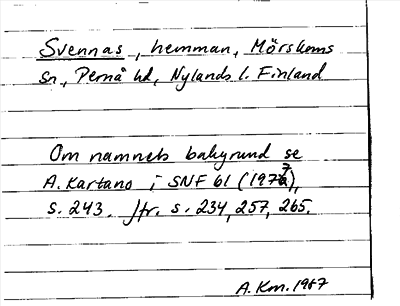 Svennas, hemman, Mörskoms
sn, Pernå hd, Nylands l. Finland
Om namnets bakgrund se
A. Kartano i SNF 61 (1973),
s. 243. Jfr. s. 234, 257, 265.
A. Km. 1987